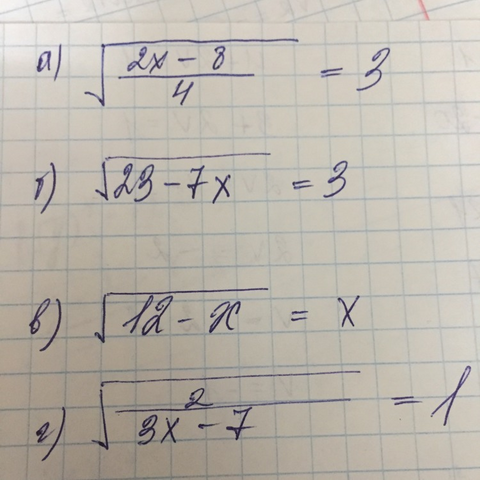 а) √((2x - 8)/4) = 3
б) √(23 - 7x) = 3
в) √(12 - x) = x
г) √(2/(3x - 7)) = 1